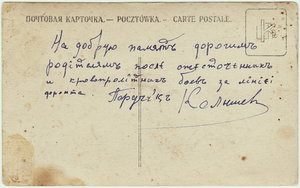 ПОЧТОВАЯ КАРТОЧКА. — POCZTÓWKA. — CARTE POSTALE.
На добрую память дорогимъ
родителямъ после ожесточенныхъ
и кровопролитныхъ боевъ за линіи
фронта. Поручикъ